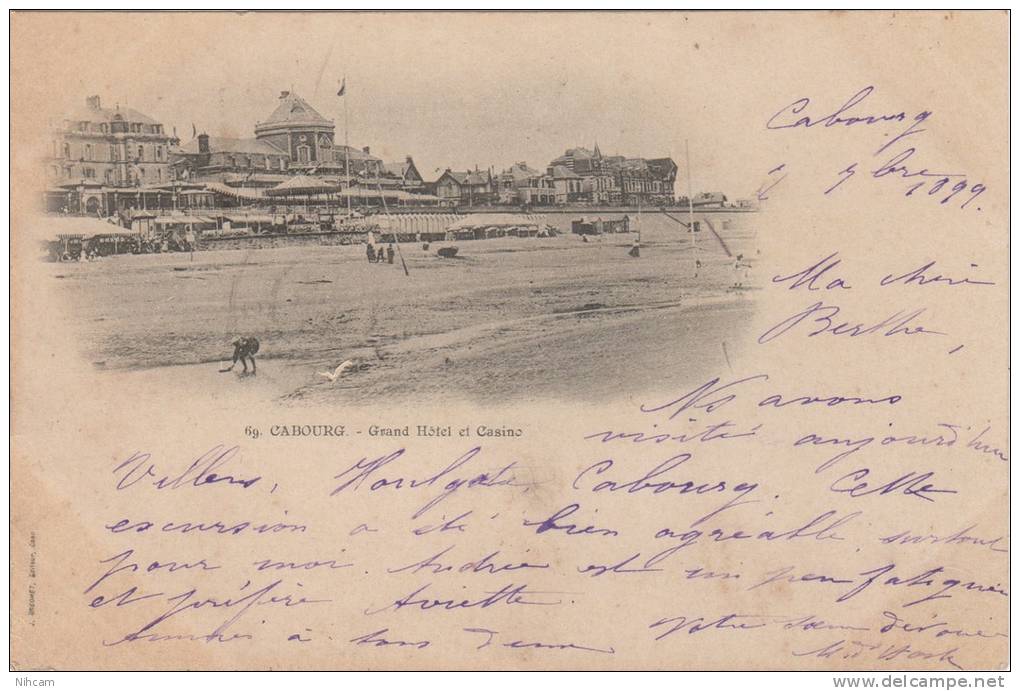 Cabourg
7bre 1899.
Ma chère
Berthe,
69. CABOURG. - Grand Hôtel et Casino
Ns avons
visité aujourd'hui
Villers, Houlgate, Cabourg. Cette
excursion a été bien agréable surtout
pour moi. Andrée est un peu fatiguée
et préfère
à tous deux
Votre sœur dévouée
J. BRÉCHET, Editeur, Caen
Nihcam
www.delcampe.net